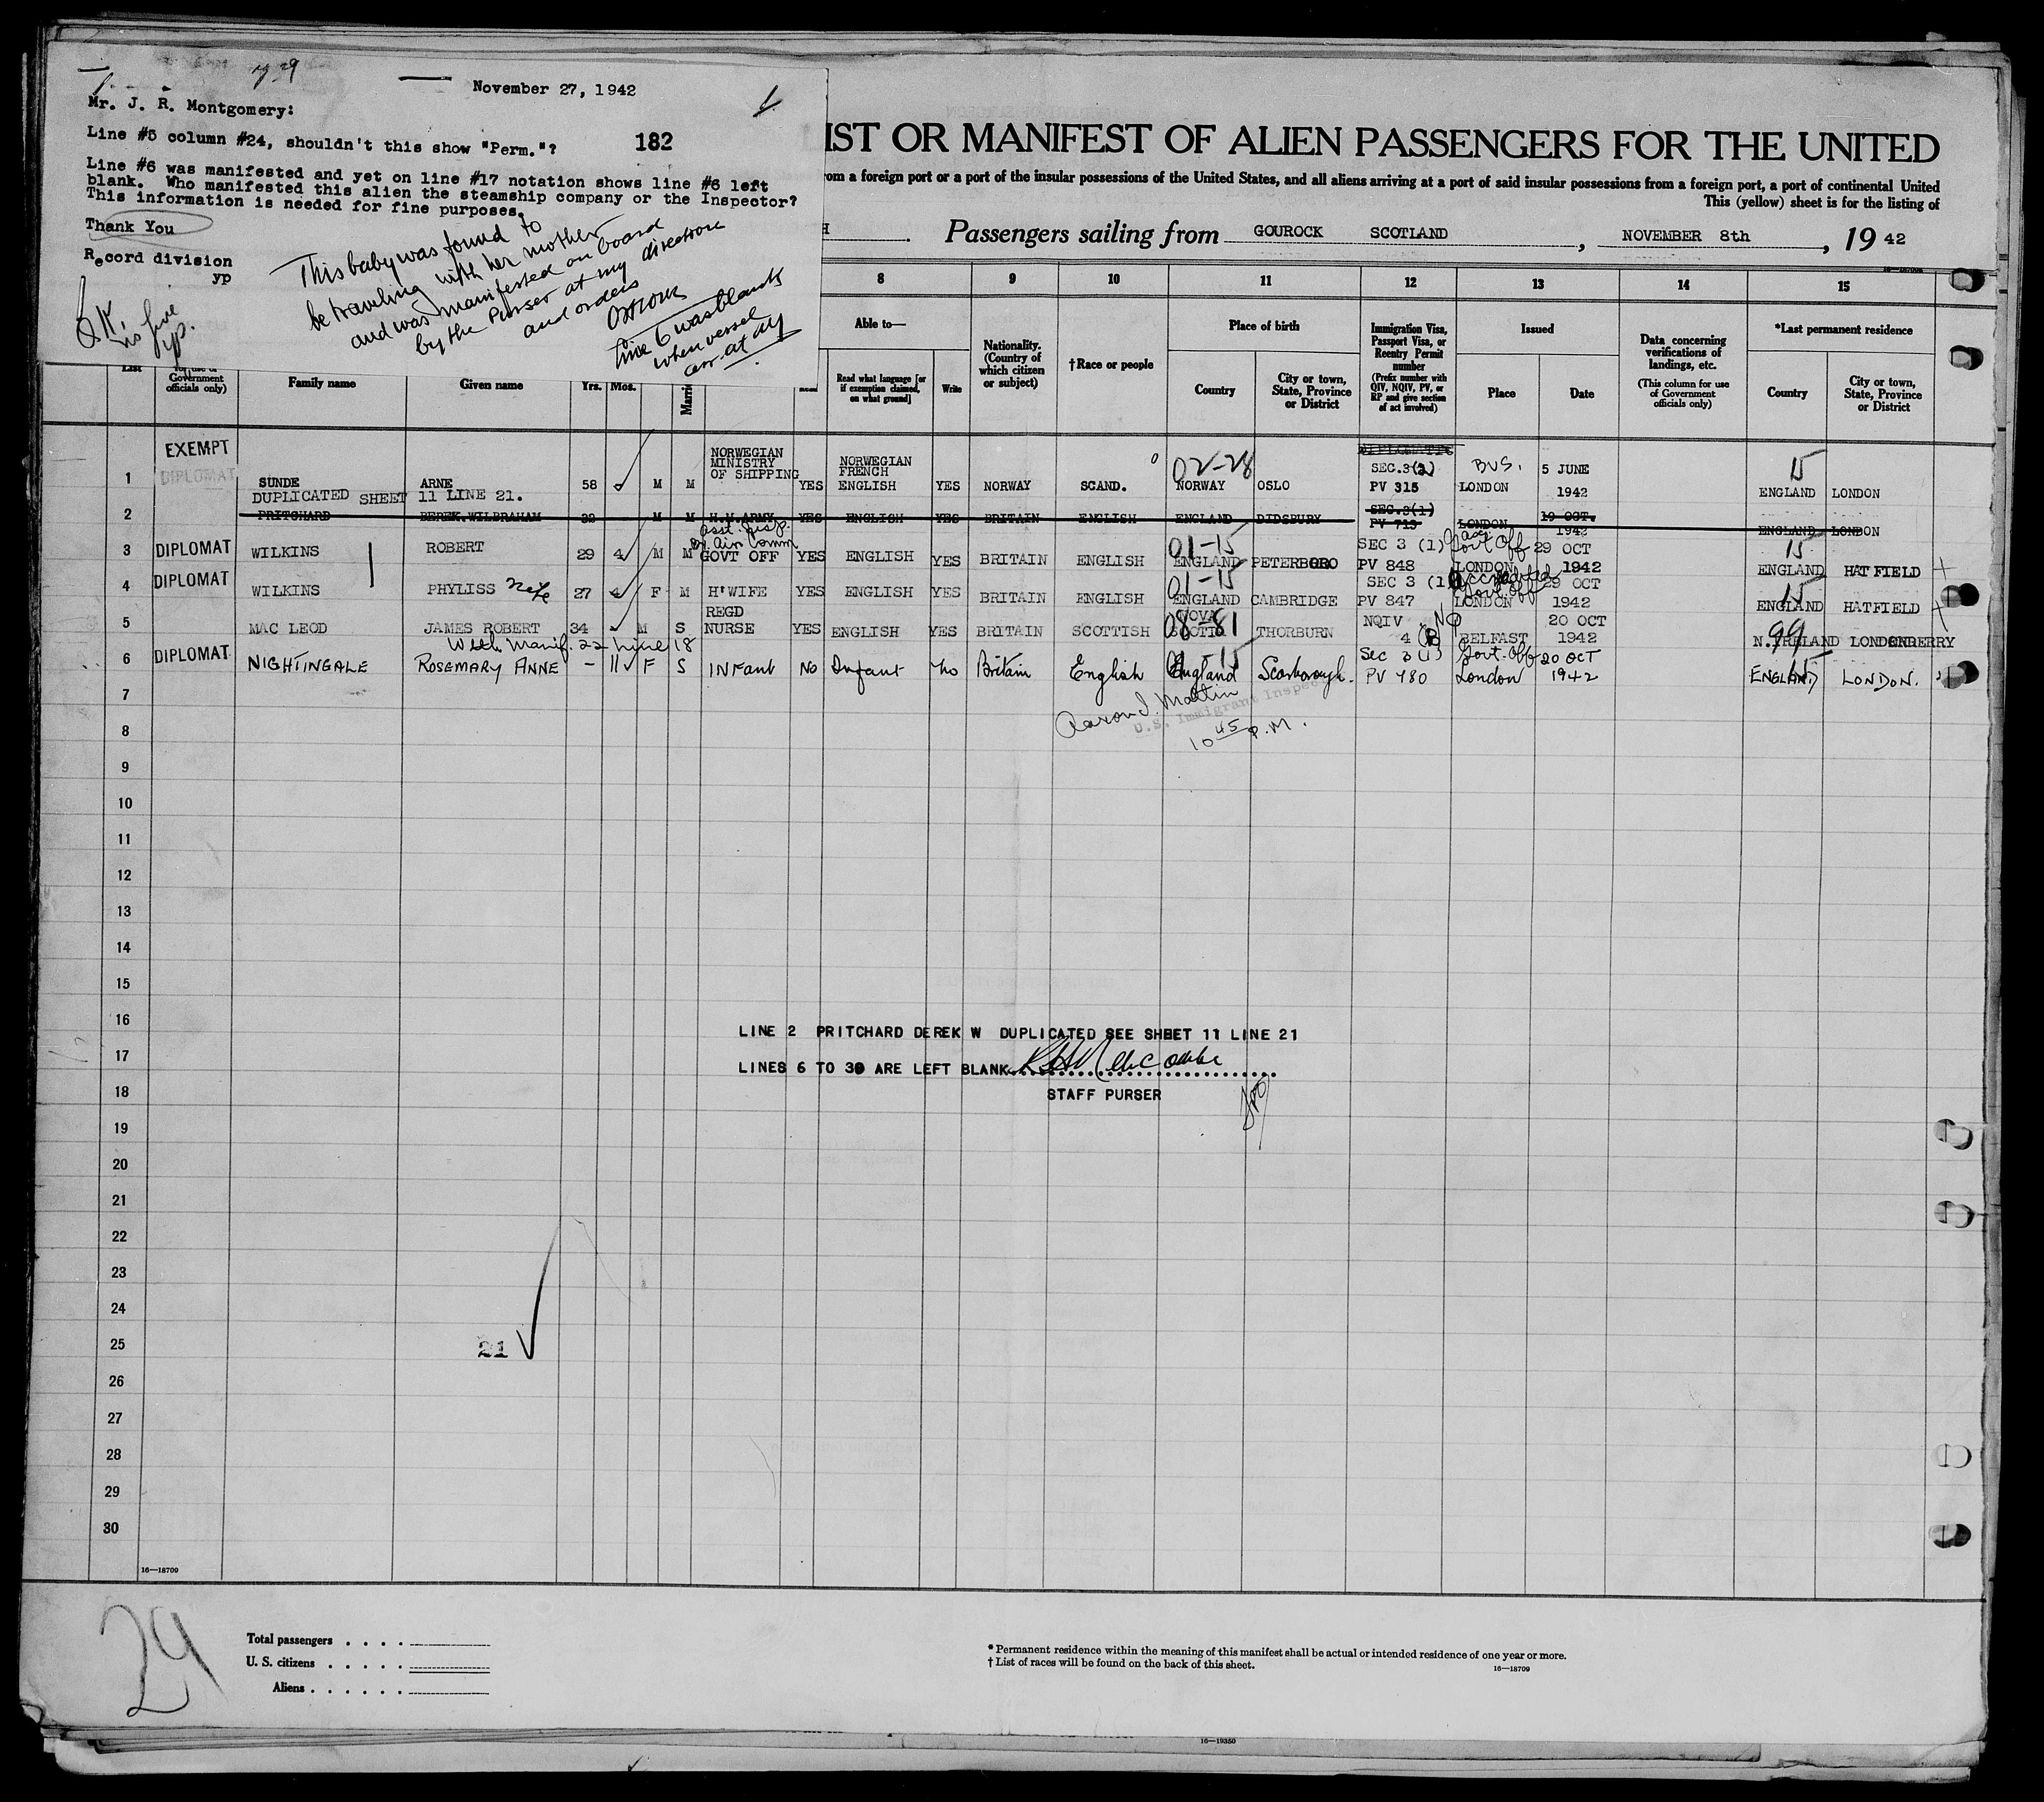 7 29
November 27, 1942
Mr. J. R. Montgomery:
Line #5 column #24, shouldn't this show "Perm."?
182
Line #6 was manifested and yet on line #17 notation shows line #6 left
blank. Who manifested this alien the steamship company or the Inspector?
This information is needed for fine purposes.
Thank You
Record division
yp
This baby was found to
be traveling with her mother
and was manifested on board
by the Purser at my direction
and orders
Line 6 was blank
when vessel
arr at NY
no fine
yp.
IST OR MANIFEST OF ALIEN PASSENGERS FOR THE UNITED
rom a foreign port or a port of the insular possessions of the United States, and all aliens arriving at a port of said insular possessions from a foreign port, a port of continental United
This (yellow) sheet is for the listing of
H Passengers sailing from GOUROCK SCOTLAND , NOVEMBER 8th , 19 42
8 9 10 11 12 13 14 15
List
Government officials only)
Family name
Given name
Yrs. Mos.
Able to—
Read what language [or if exemption claimed, on what ground]
Write
Nationality. (Country of which citizen or subject)
†Race or people
Place of birth
Country
City or town, State, Province or District
Immigration Visa, Passport Visa, or Reentry Permit number
(Prefix number with QIV, NQIV, PV, or RP and give section of act involved)
Issued
Place
Date
Data concerning verifications of landings, etc.
(This column for use of Government officials only)
*Last permanent residence
Country
City or town, State, Province or District
EXEMPT
DIPLOMAT
1 SUNDE ARNE 58 M M NORWEGIAN MINISTRY OF SHIPPING YES NORWEGIAN FRENCH ENGLISH YES NORWAY SCAND. 02-28 NORWAY OSLO SEC.3(2) PV 315 BUS. LONDON 5 JUNE 1942 15 ENGLAND LONDON
DUPLICATED SHEET 11 LINE 21.
2 PRITCHARD DEREK.WILBRAHAM 32 M M H.M.ARMY YES ENGLISH YES BRITAIN ENGLISH ENGLAND DIDSBURY SEC.3(1) PV 713 LONDON 19 OCT. 1942 ENGLAND LONDON
3 DIPLOMAT WILKINS ROBERT 29 M M GOVT OFF YES ENGLISH YES BRITAIN ENGLISH 01-15 ENGLAND PETERBORO SEC 3 (1) PV 848 Govt Off LONDON 29 OCT 1942 15 ENGLAND HATFIELD
4 DIPLOMAT WILKINS PHYLISS wife 27 F M H'WIFE YES ENGLISH YES BRITAIN ENGLISH 01-15 ENGLAND CAMBRIDGE SEC 3 (1) PV 847 Govt. Off LONDON 29 OCT 1942 15 ENGLAND HATFIELD
5 MAC LEOD JAMES ROBERT 34 M S REGD NURSE YES ENGLISH YES BRITAIN SCOTTISH 08-81 NOVA SCOTIA THORBURN NQIV 4 (B) BELFAST 20 OCT 1942 99 N.IRELAND LONDONDERRY
With Manif. 22 Line 18
6 DIPLOMAT NIGHTINGALE ROSEMARY ANNE - 11 F S INFANT No Infant No Britain English England Scarborough. Sec 3 (1) PV 480 Govt. Off London 20 OCT 1942 15 ENGLAND LONDON.
7
Aaron I. Maltin
U.S. Immigrant Inspector
10 45 P.M.
8
9
10
11
12
13
14
15
16
LINE 2 PRITCHARD DEREK W DUPLICATED SEE SHEET 11 LINE 21
17
LINES 6 TO 30 ARE LEFT BLANK
18
STAFF PURSER
19
20
21
22
23
24
25
21
26
27
28
29
30
16—18709
29
Total passengers
U. S. citizens
Aliens
* Permanent residence within the meaning of this manifest shall be actual or intended residence of one year or more.
† List of races will be found on the back of this sheet.
16—18709
16—19350